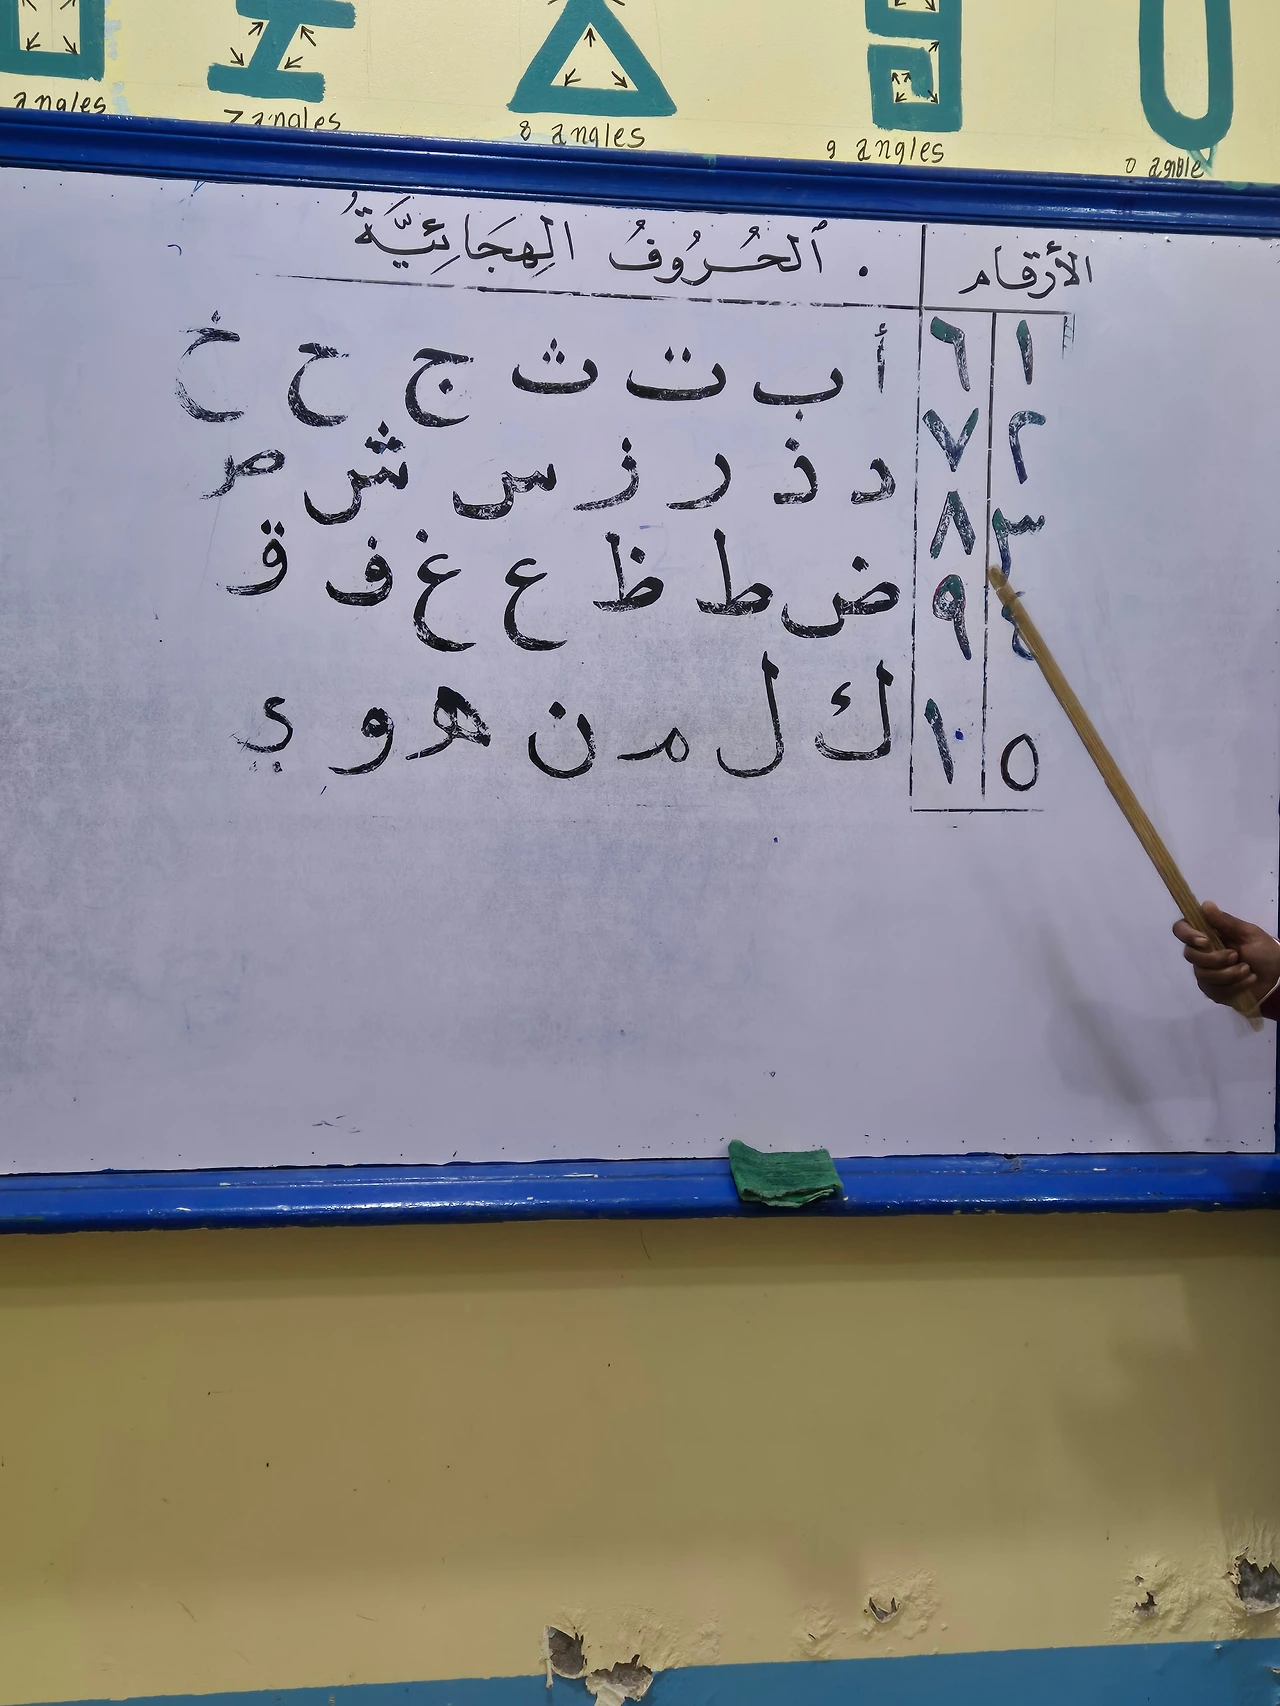 angles 7 angles 8 angles 9 angles 0 angle
الأرقام
١ ٦
٢ ٧
٣ ٨
٤ ٩
٥ ١٠
. ٱلحُرُوفُ الهِجَائِيَّةُ
أ ب ت ث ج ح خ
د ذ ر ز س ش ص
ض ط ظ ع غ ف ق
ك ل م ن ه و ي